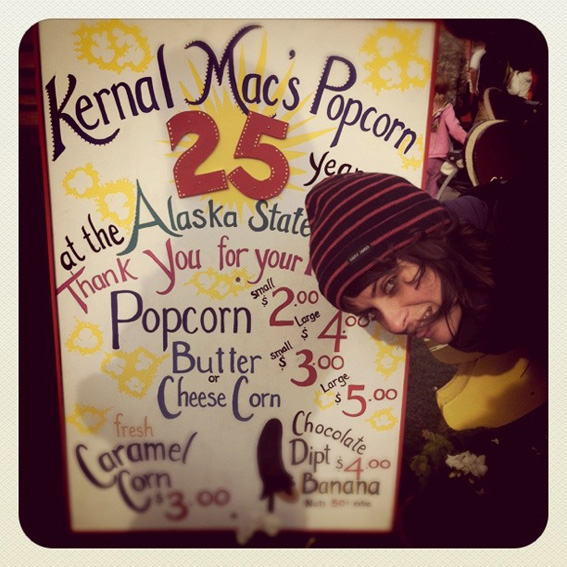 Kernal Mac's Popcorn
25 Years
at the Alaska State
Thank You for your
Popcorn small $2.00
Large $4.00
Butter or Cheese Corn small $3.00
Large $5.00
fresh Caramel Corn $3.00
Chocolate Dipt Banana $4.00
Nuts 50¢ extra